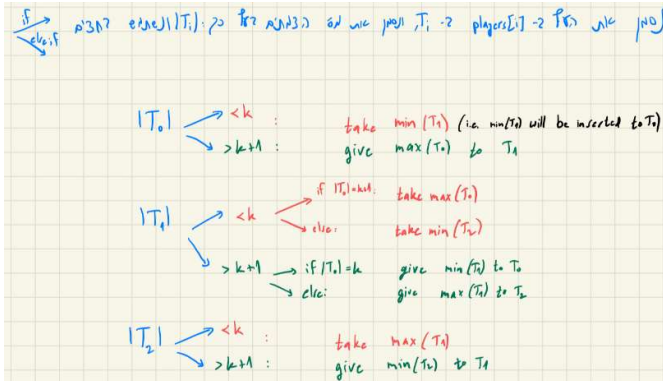 נסמן את העץ ב- players[i] ב- Tᵢ, נסמן את מס' הצמתים בעץ כך: |Tᵢ| החצים
if
else if
|T₀| <k : take min(T₁) (i.e. min(T₁) will be inserted to T₀)
>k+1 : give max(T₀) to T₁
|T₁| <k if |T₀|=k+1: take max(T₀)
else: take min(T₂)
>k+1 if |T₀|=k give min(T₁) to T₀
else: give max(T₁) to T₂
|T₂| <k : take max(T₁)
>k+1 : give min(T₂) to T₁